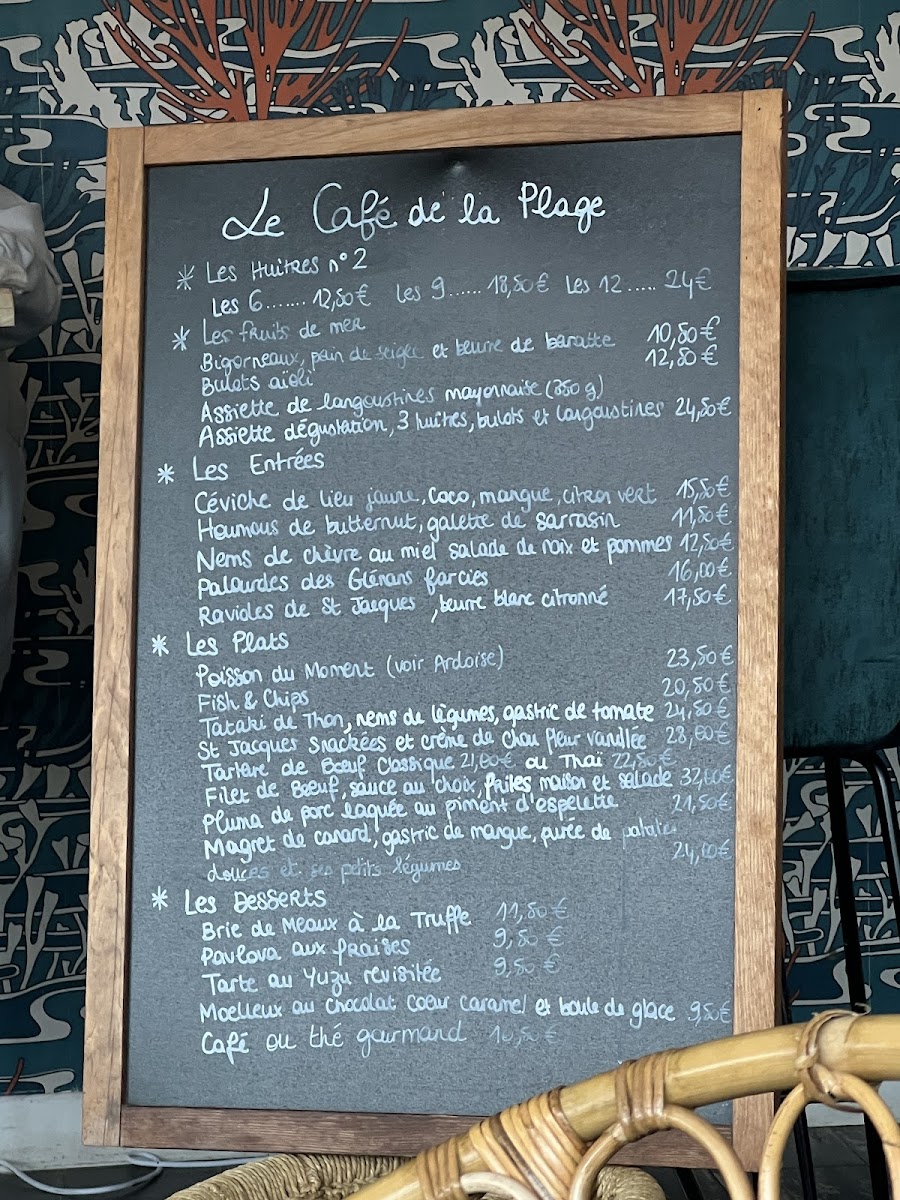 Le Café de la Plage
* Les Huîtres n°2
Les 6....... 12,50€ Les 9...... 18,50€ Les 12..... 24€
* Les fruits de mer
Bigorneaux, pain de seigle et beurre de baratte 10,50€
Bulots aïoli 12,50€
Assiette de langoustines mayonnaise (350 g)
Assiette dégustation, 3 huîtres, bulots et langoustines 24,50€
* Les Entrées
Céviche de lieu jaune, coco, mangue, citron vert 15,50€
Houmous de butternut, galette de sarrasin 11,50€
Nems de chèvre au miel salade de noix et pommes 12,50€
Palourdes des Glénans farcies 16,00€
Ravioles de St Jacques, beurre blanc citronné 17,50€
* Les Plats
Poisson du Moment (voir Ardoise) 23,50€
Fish & Chips 20,50€
Tataki de Thon, nems de légumes, gastric de tomate 24,50€
St Jacques snackées et crème de chou fleur vanillée 28,00€
Tartare de Bœuf Classique 21,00€ ou Thaï 22,50€
Filet de Bœuf, sauce au choix, frites maison et salade 32,00€
Pluma de porc laquée au piment d'espelette 21,50€
Magret de canard, gastric de mangue, purée de patates
douces et ses petits légumes 24,00€
* Les Desserts
Brie de Meaux à la Truffe 11,50€
Pavlova aux fraises 9,50€
Tarte au Yuzu revisitée 9,50€
Moelleux au chocolat coeur caramel et boule de glace 9,50€
Café ou thé gourmand 10,50€